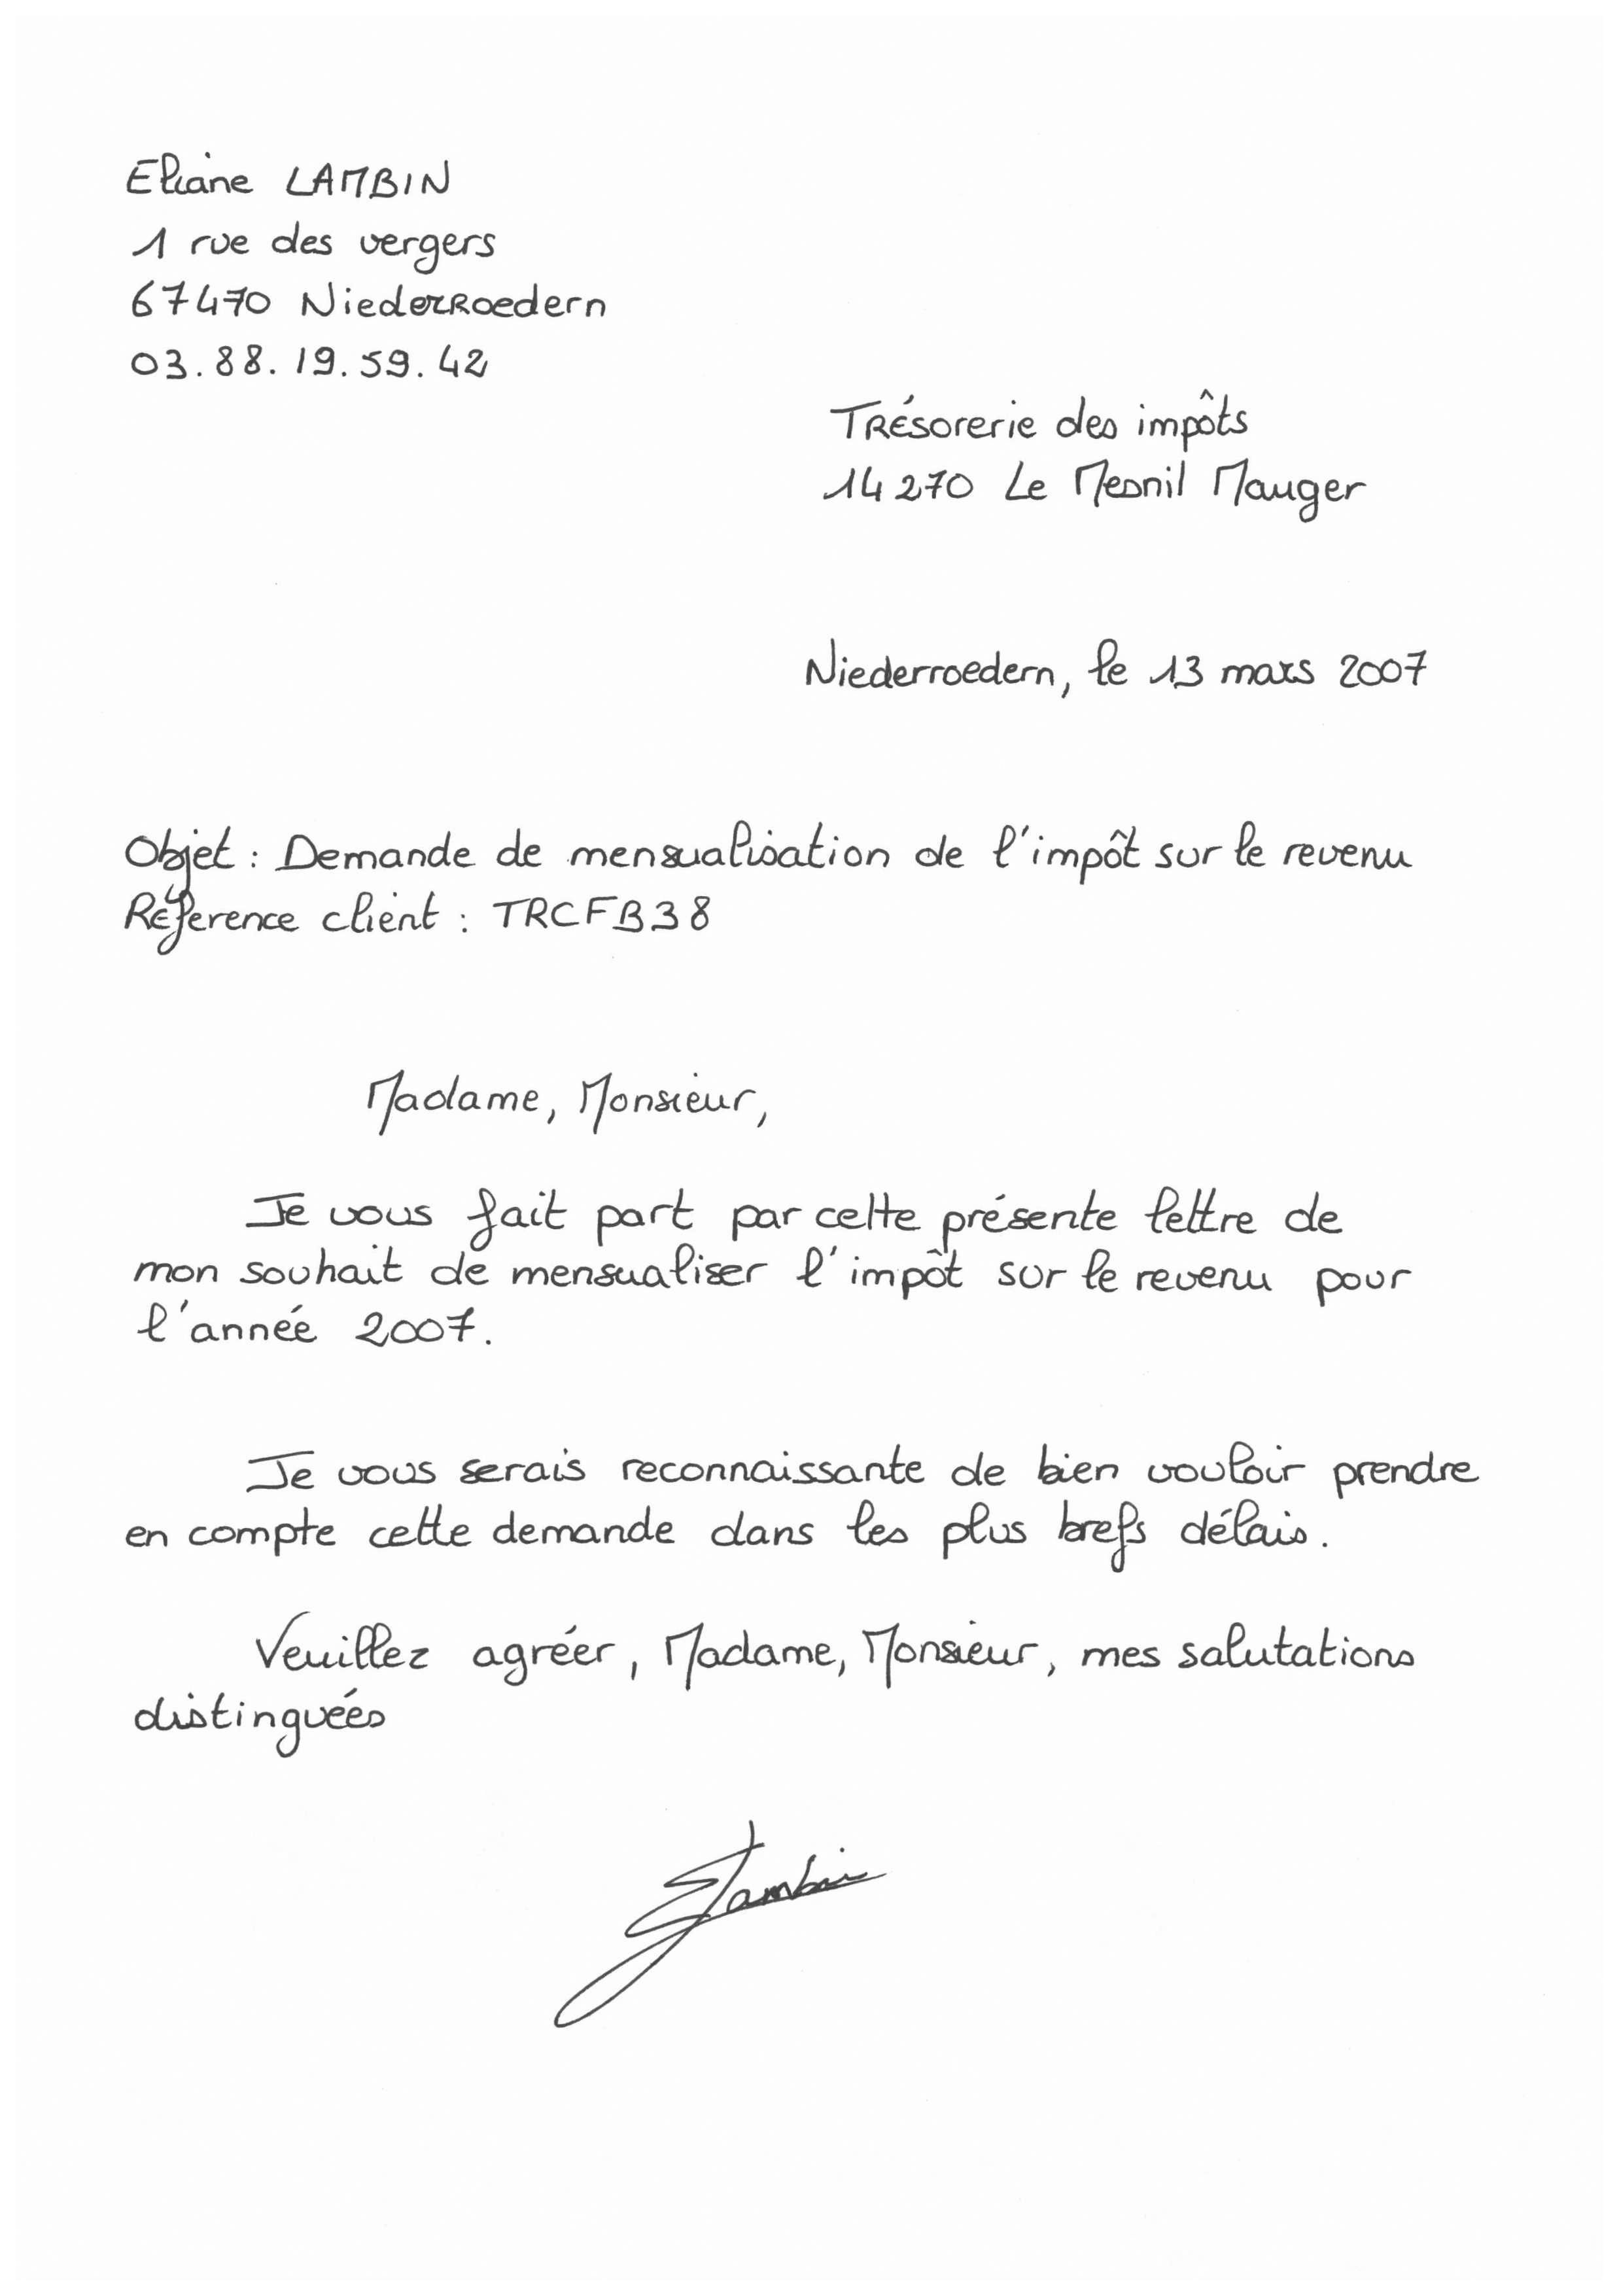 Eliane LAMBIN
1 rue des vergers
67470 Niederroedern
03.88.19.59.42
Trésorerie des impôts
14270 Le Mesnil Mauger
Niederroedern, le 13 mars 2007
Objet : Demande de mensualisation de l'impôt sur le revenu
Référence client : TRCFB38
Madame, Monsieur,
Je vous fait part par cette présente lettre de
mon souhait de mensualiser l'impôt sur le revenu pour
l'année 2007.
Je vous serais reconnaissante de bien vouloir prendre
en compte cette demande dans les plus brefs délais.
Veuillez agréer, Madame, Monsieur, mes salutations
distinguées
ELambin